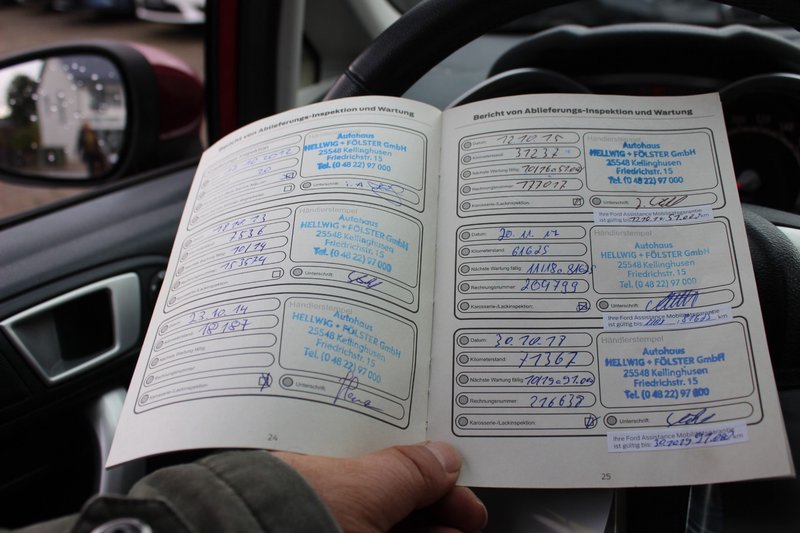 Bericht von Ablieferungs-Inspektion und Wartung
10.2012
20
Unterschrift: i.A
Autohaus
HELLWIG + FÖLSTER GmbH
25548 Kellinghusen
Friedrichstr. 15
Tel. (0 48 22) 97 000
13
7536
10/14
153574
Händlerstempel
Autohaus
HELLWIG + FÖLSTER GmbH
25548 Kellinghusen
Friedrichstr. 15
Tel. (0 48 22) 97 000
Unterschrift:
Datum: 23.10.14
Kilometerstand: 18187
Nächste Wartung fällig:
Rechnungsnummer:
Karosserie-/Lackinspektion:
Händlerstempel
Autohaus
HELLWIG + FÖLSTER GmbH
25548 Kellinghusen
Friedrichstr. 15
Tel. (0 48 22) 97 000
Unterschrift:
24
Bericht von Ablieferungs-Inspektion und Wartung
Datum: 12.10.15
Kilometerstand: 31237
Nächste Wartung fällig: 10/16
Rechnungsnummer: 177017
Karosserie-/Lackinspektion:
Händlerstempel
Autohaus
HELLWIG + FÖLSTER GmbH
25548 Kellinghusen
Friedrichstr. 15
Tel. (0 48 22) 97 000
Unterschrift:
Ihre Ford Assistance Mobilitätsgarantie
ist gültig bis:
Datum: 20.11.17
Kilometerstand: 61625
Nächste Wartung fällig: 11/18 o. 81625
Rechnungsnummer: 204799
Karosserie-/Lackinspektion:
Händlerstempel
Autohaus
HELLWIG + FÖLSTER GmbH
25548 Kellinghusen
Friedrichstr. 15
Tel. (0 48 22) 97 000
Unterschrift:
Ihre Ford Assistance Mobilitätsgarantie
ist gültig bis:
Datum: 30.10.18
Kilometerstand: 71367
Nächste Wartung fällig: 10/19 o. 91.000
Rechnungsnummer: 216638
Karosserie-/Lackinspektion:
Händlerstempel
Autohaus
HELLWIG + FÖLSTER GmbH
25548 Kellinghusen
Friedrichstr. 15
Tel. (0 48 22) 97 000
Unterschrift:
Ihre Ford Assistance Mobilitätsgarantie
ist gültig bis: 30.10.19 91.000 km
25